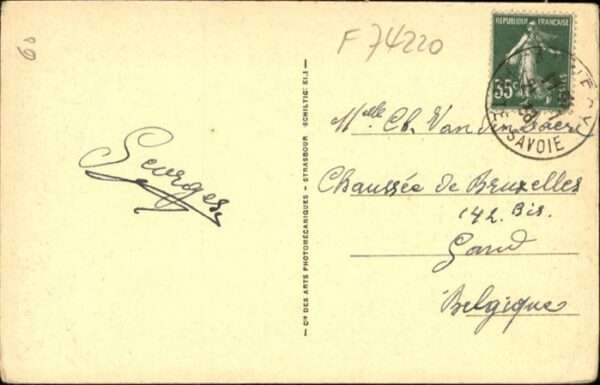 60
F 74220
RÉPUBLIQUE FRANÇAISE
35c
SAVOIE
Melle Ch. Van
Chaussée de Bruxelles
142 Bis.
Gand
Belgique
Georges
Cie DES ARTS PHOTOMÉCANIQUES - STRASBOURG - SCHILTIGHEIM